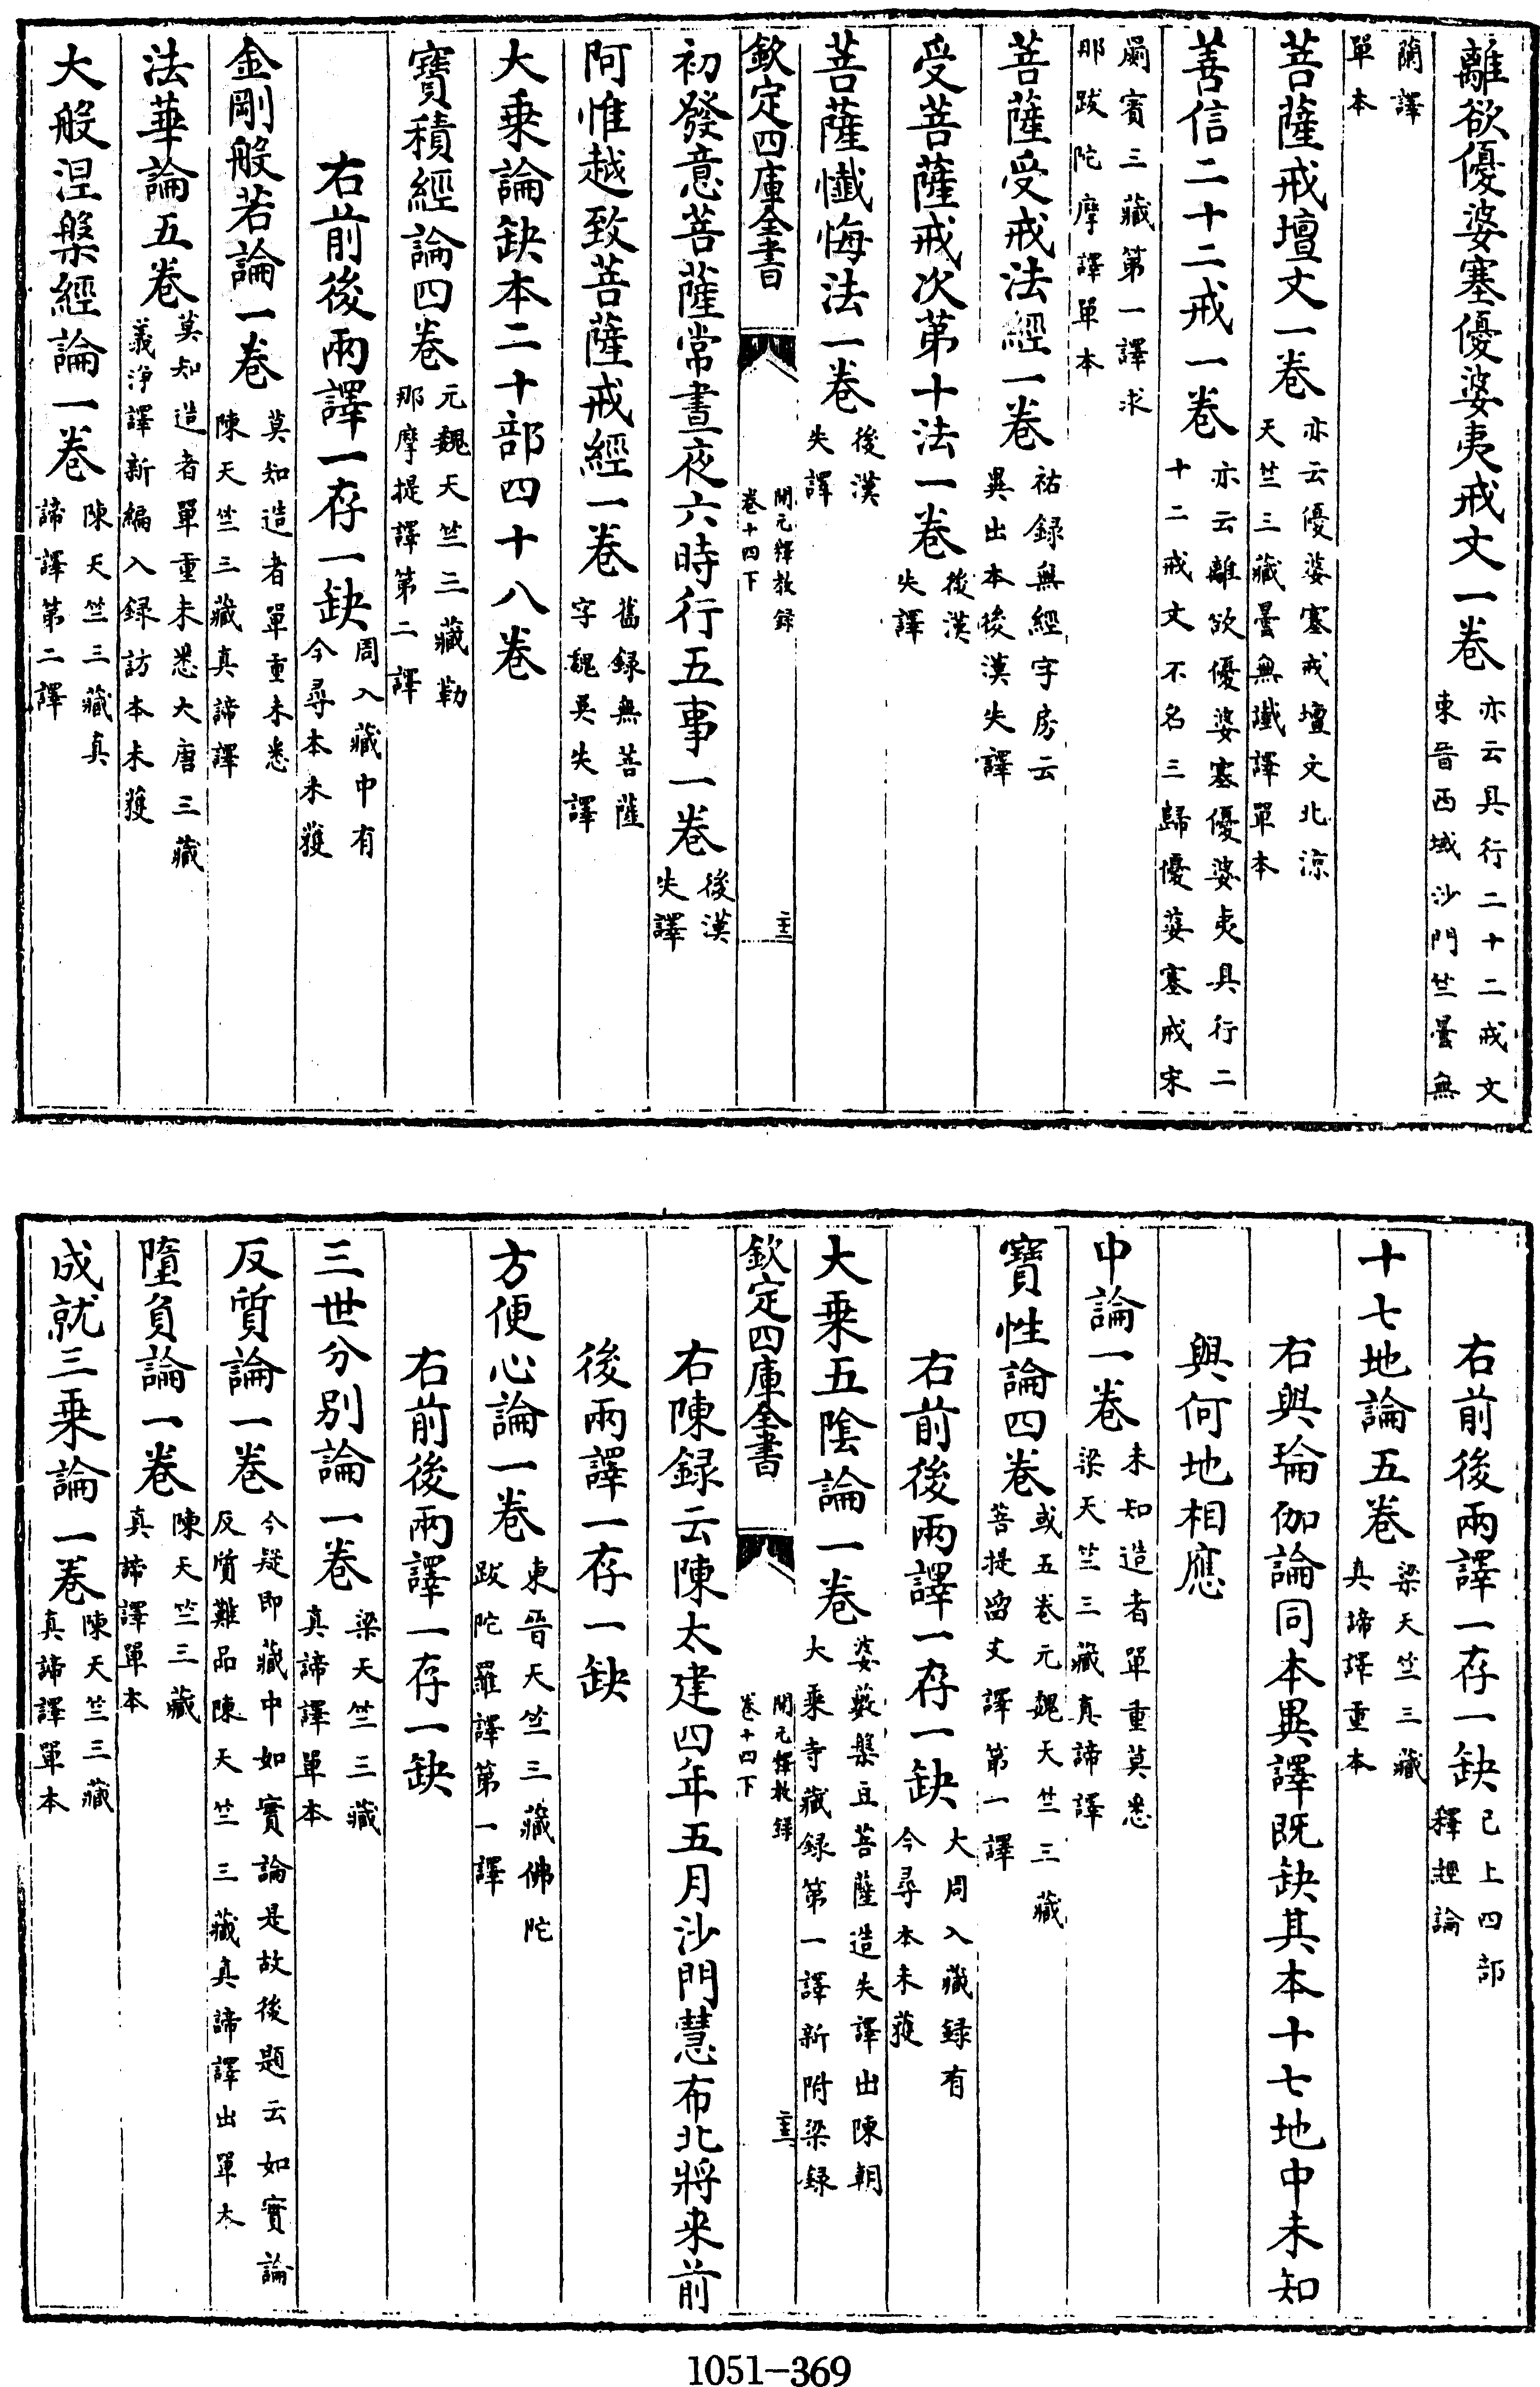 離欲優婆塞優婆夷戒文一卷亦云具行二十二戒文東晉西域沙門竺曇無
蘭譯單本
菩薩戒壇文一卷亦云優婆塞戒壇文北涼天竺三藏曇無讖譯單本
善信二十二戒一卷亦云離欲優婆塞優婆夷具行二十二戒文不名三歸優婆塞戒宋
罽賓三藏第一譯求那跋陀摩譯單本
菩薩受戒法經一卷祐録無經字房云異出本後漢失譯
受菩薩戒次第十法一卷後漢失譯
菩薩懺悔法一卷後漢失譯
欽定四庫全書 開元釋教録卷十四下 主
初發意菩薩常晝夜六時行五事一卷後漢失譯
阿惟越致菩薩戒經一卷舊録無菩薩字魏吳失譯
大乗論缺本二十部四十八卷
寶積經論四卷元魏天竺三藏勒那摩提譯第二譯
右前後兩譯一存一缺周入藏中有今尋本未獲
金剛般若論一卷莫知造者單重未悉陳天竺三藏真諦譯
法華論五卷莫知造者單重未悉大唐三藏義淨譯新編入録訪本未獲
大般涅槃經論一卷陳天竺三藏真諦譯第二譯
右前後兩譯一存一缺已上四部釋經論
十七地論五卷梁天竺三藏真諦譯重本
右與瑜伽論同本異譯既缺其本十七地中未知
與何地相應
中論一卷未知造者單重莫悉梁天竺三藏真諦譯
寶性論四卷或五卷元魏天竺三藏菩提留支譯第一譯
右前後兩譯一存一缺大周入藏録有今尋本未獲
大乗五陰論一卷婆藪槃豆菩薩造失譯出陳朝大乗寺藏録第一譯新附梁録
欽定四庫全書 開元釋教録卷十四下 主
右陳録云陳太建四年五月沙門慧布北將来前
後兩譯一存一缺
方便心論一卷東晉天竺三藏佛陀跋陀羅譯第一譯
右前後兩譯一存一缺
三世分別論一卷梁天竺三藏真諦譯單本
反質論一卷今疑即藏中如實論是故後題云如實論反質難品陳天竺三藏真諦譯出單本
墮負論一卷陳天竺三藏真諦譯單本
成就三乗論一卷陳天竺三藏真諦譯單本
1051-369